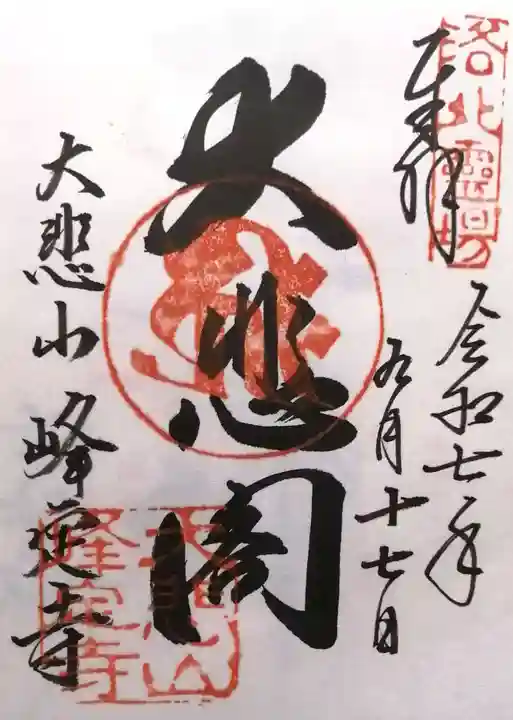 奉拝
洛北霊場
令和七年
九月十七日
大悲閣
大悲山 峰定寺
大悲山
峰定寺